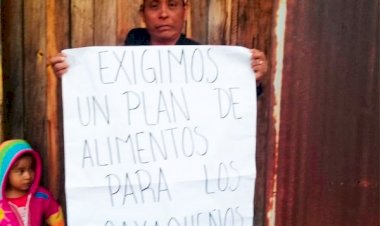 EXIGIMOS
UN PLAN DE
ALIMENTOS
PARA LOS
OAXAQUEÑOS